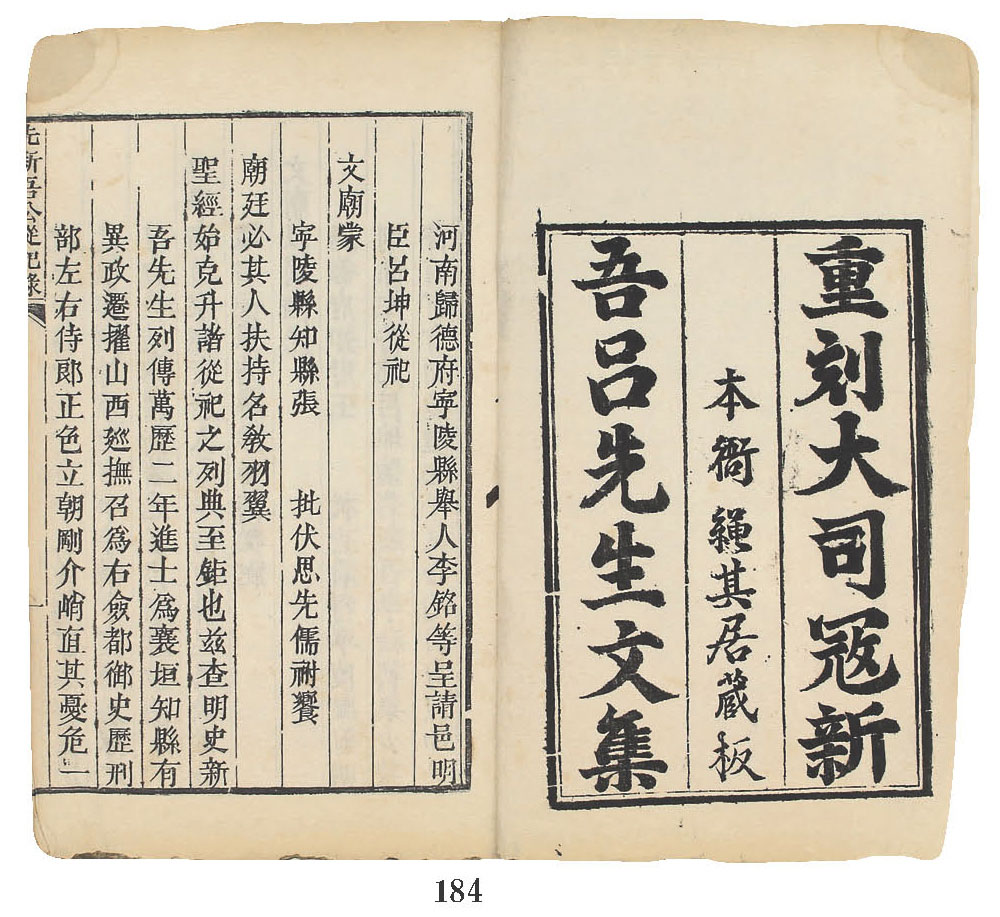 重刻大司寇新
本衙繩其居藏板
吾呂先生文集
河南歸德府寧陵縣舉人李銘等呈請邑明
臣呂坤從祀
文廟蒙
寧陵縣知縣張 批伏思先儒祔饗
廟廷必其人扶持名敎羽翼
聖經始克升諸從祀之列典至鉅也茲查明史新
吾先生列傳萬歷二年進士爲襄垣知縣有
異政遷擢山西廵撫召爲右僉都御史歷刑
部左右侍郎正色立朝剛介峭直其憂危一
先新吾公從祀錄
一
184